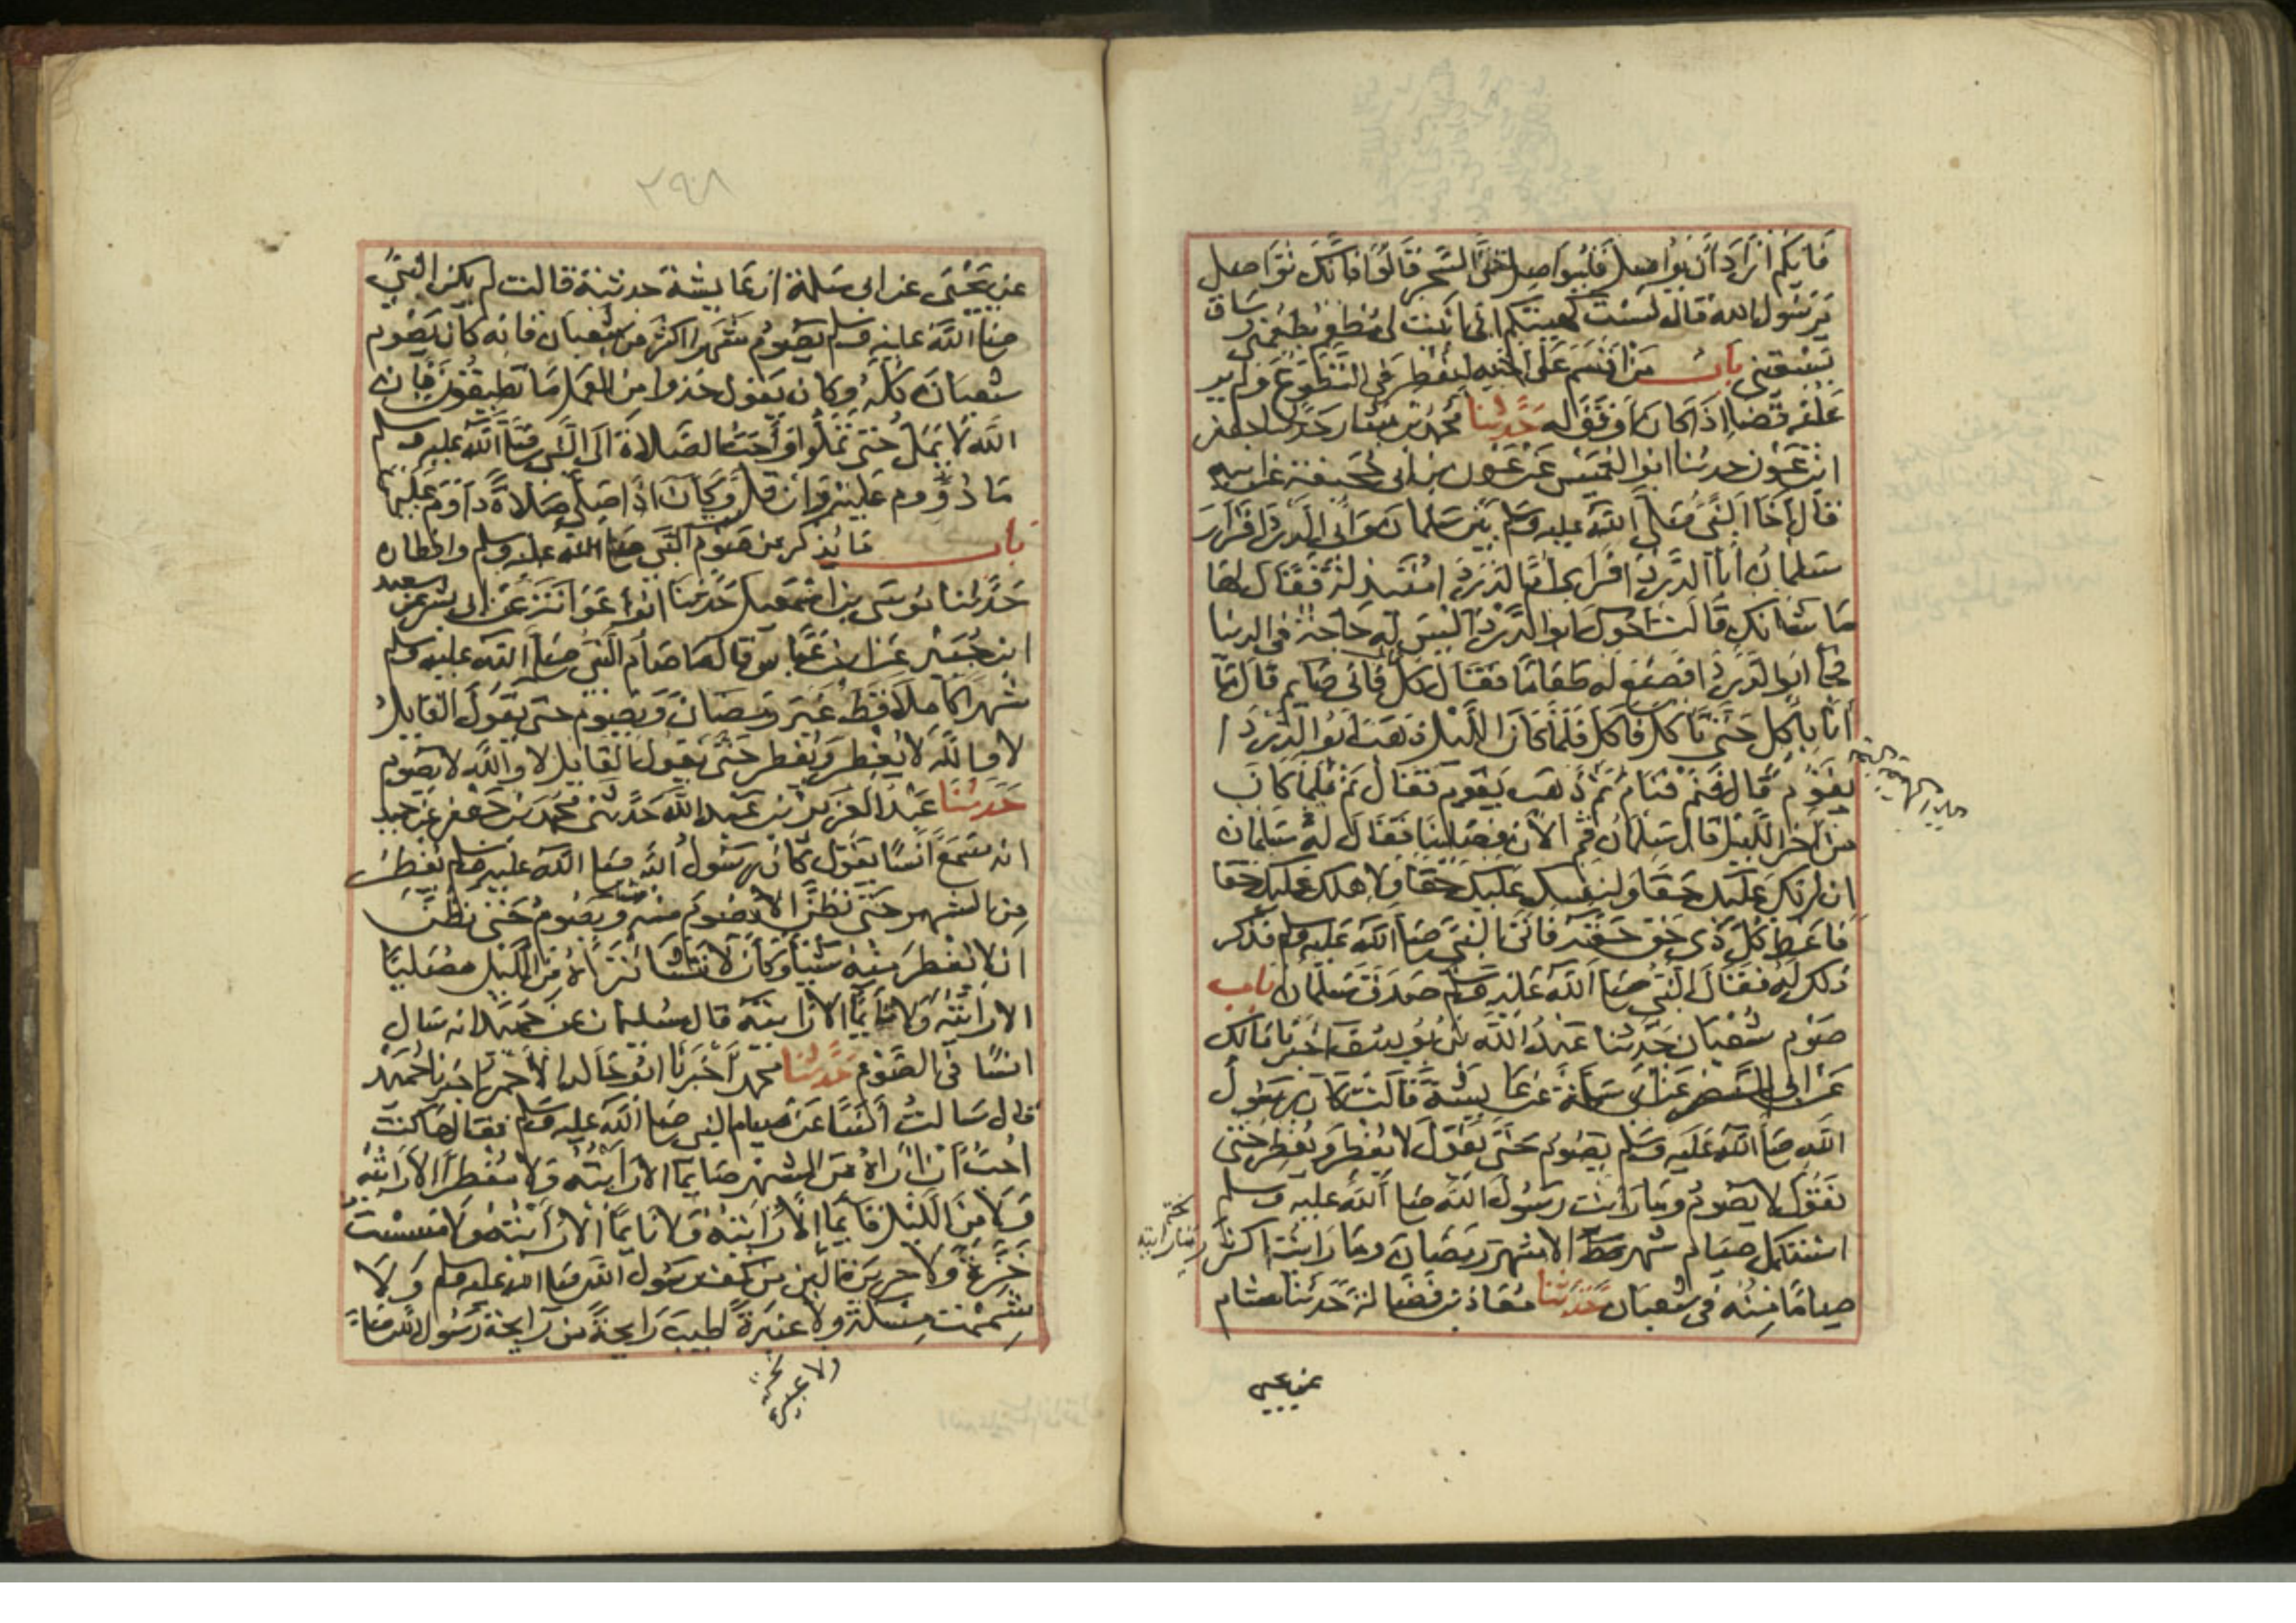 فَأيكم أرَادَ أن يُواصل فليُواصل حتى السَّحر قَالوُا فإنك توَاصل
يَرسُول الله قال لسْت كهيئتكم انى ابَيْت لى مُطعم يُطعِمنى وسَاق
يَسْقينى بَاب من اقْسَمَ عَلَى اخيه ليُفْطِر فى التَّطَوّع ولم ير
عَلَيْه قَضا اذَا كَانَ اَوْفَقَ له حَدَّثنا مُحمد بن بَشار حَدثنا جعفر
ابن عَوْن حدثنا ابوا العُمَيْس عَنْ عَوْن بن ابى جُحَيفة عن ابيه
قال آخَا النَّبى صَلَّى الله عليه وسَلم بَيْن سَلمان وَابى الدردا فَزارَ
سَلمانُ أبَا الدَّردا فرَاى اُمّ الدَّردا مُتبَذلة فقَال لهَا
مَا شَانك قَالت اخوك ابوا الدَّرْدا لَيْسَ له حَاجَة فى الدنيا
فجا ابوا الدَّردا فصَنَع له طعَامًا فقَال كُل فانى صَايم قالَ مَا
اَنا بِاكل حَتَّى تَاكل فَاكل فَلَمَّا كان اللَّيْل ذهَبَ ابوا الدَّرْدَا
يَقُوم قَال نَم فنَام ثم ذَهَب يَقوم فقَال نَمْ فَلمَّا كان
من آخر اللَّيْل قال سَلمانُ قُم الآن فصَلينا فقَال لهُ سَلمان
ان لربكَ عَلَيك حَقا ولنفسك عَليك حَقا ولاهلك عَليك حَقا
فَاعْط كُلَّ ذى حَق حَقه فَاتى النَّبىَّ صَلى الله عَليه وسلم فذكر
ذلك له فقَال النَّبى صَلى الله عَليه وسَلم صَدَق سَلْمان بَاب
صَوْم شعْبان حَدَّثنا عَبْدُ الله بن يُوسف اخبرنا مَالك
عَنْ ابى النضر عَن ابى سَلمَة عَن عَايشَة قَالت كَان رسُول
الله صَلى الله عَليه وسلم يصُوم حَتَّى نَقُول لا يُفْطِر وَيُفْطِر حَتى
نَقول لا يَصُومُ ومَا رَايت رَسُولَ الله صَلى الله عليه وسلم
استكمل صيَام شهر قط الا شهر رَمَضان ومَا رَايته اكثر
صيامًا منْه فى شعبَان حَدَّثنا مُعَاذ بن فَضالة حَدثنا هشام
عن يحيى
٢٩٨
عن يَحْيَى عن ابى سَلمة ان عَايشة حدثته قالت لم يكن النبىّ
صَلى الله عليه وسلم يَصُومُ شهرا اكثر من شعبان فانه كان يَصُوم
شعبان كله وكان يَقول خذوا من العمل مَا تطيقون فان
الله لا يَمَلّ حتى تمَلوا وَاحَبّ الصَلاة الَى النَّبى صَلى الله عليه وسلم
مَا دُوومَ عَليْه وَان قَلّ وَكانَ اذا صَلى صَلاةً دَاوَمَ عَليهَا
بَاب مَا يذكر من صَوْم النَّبى صَلى الله عليه وسلم وافطاره
حَدَّثنا مُوسَى بن اسْمعيل حَدثنا ابوا عَوَانة عَنْ ابى بشر عن سعيد
ابن جُبَيْر عَن ابن عَبَّاس قال مَا صَام النبى صَلى الله عليه وسلم
شهرًا كَامِلا قطّ غير رمضان وَيَصُوم حتى يَقول القايل
لا والله لا يُفْطِر وَيُفطر حَتَّى يَقول القايل لا والله لا يَصُوم
حَدَّثنا عَبْدُ العزيز بن عَبد الله حَدثنى مُحمد بن جعفر عن حميد
انه سَمعَ انسًا يَقول كان رسُول الله صَلى الله عليه وسلم يفطر
من الشهر حتى نظنّ ان لا يصُوم منه ويَصُوم حتى نظنّ
ان لا يُفطر منه شيئًا وكان لا تَشا تَرَاهُ من اللَّيْل مصَليًا
الا رَايْته وَلا نَايمًا الا رَايته قال سُليمان عن حميد انه سَال
انسًا فى الصَّوْم حَدَّثنا محمد اخبَرنا ابوا خالد الاحمر اخبرنا حُميد
قال سَالتُ انَسًا عَن صيام النبى صَلى الله عليه وسلم فقال مَا كنت
احبُّ ان ارَاهُ من الشهر صَايمًا الا رَايْته وَلا مُفْطرًا الا رَايته
وَلا مِن اللَّيْل قَايمًا الا رَايته وَلا نَايمًا الا رَايْته ولا مَسسْت
خَزةً وَلا حريرة ألين من كف رسُول الله صَلى الله عليه وسلم وَلا
شَمَمْت مسْكة ولا عنبرَةً اطيَب رَايحَةً من رَايحَة رَسُول الله صَلى